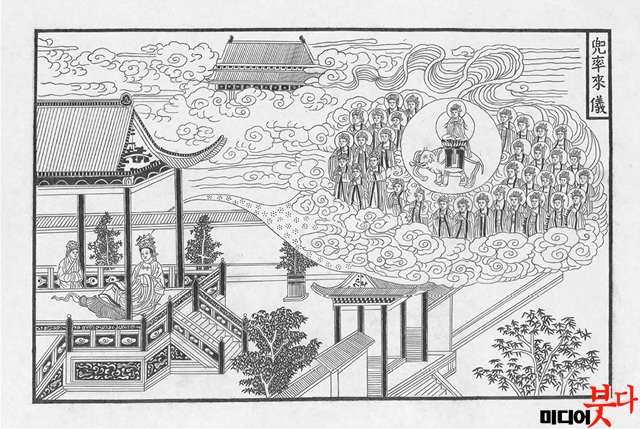 兜率來儀
미디어붓다